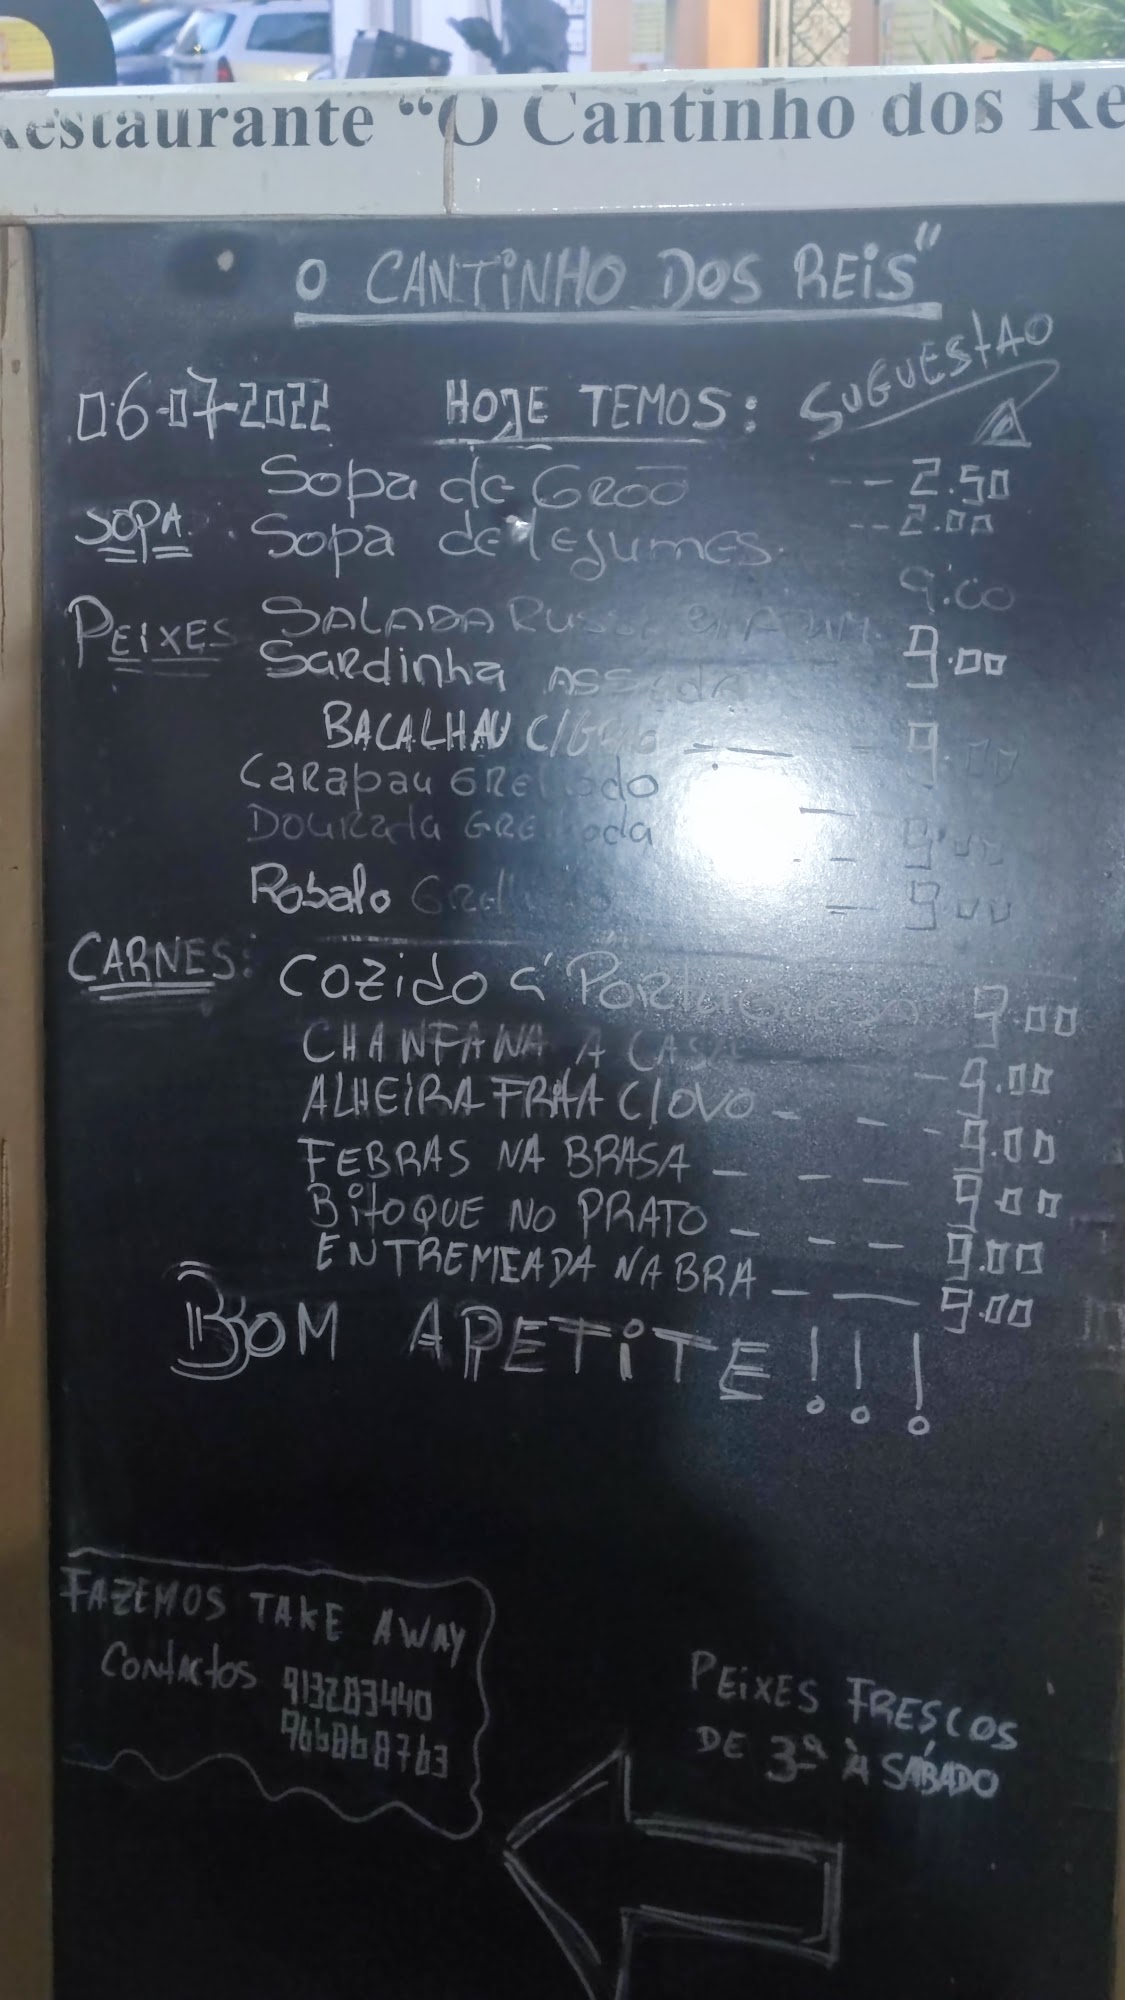 Restaurante "O Cantinho dos Re
O CANTINHO DOS REIS"
06-07-2022 HOJE TEMOS: SUGUESTAO
Sopa de Grão -- 2.50
SOPA. Sopa de legumes -- 2.00
PEIXES SALADA RUSSA 9.00
Sardinha Assada 9.00
BACALHAU C/GRÃO 9.00
Carapau GRELhado
Dourada GRELhada 9.00
Robalo Grelhado 9.00
CARNES: COZido á Portuguesa 9.00
CHANFANA A CASA 9.00
ALHEIRA FRitA C/OVO 9.00
FEBRAS NA BRASA 9.00
BitoQUE NO PRATO 9.00
ENTREMEADA NA BRA 9.00
BOM APETiTE!!!
FAZEMOS TAKE AWAY
CONTACTOS 913283440
966868763
PEIXES FRESCOS
DE 3ª À SÁBADO